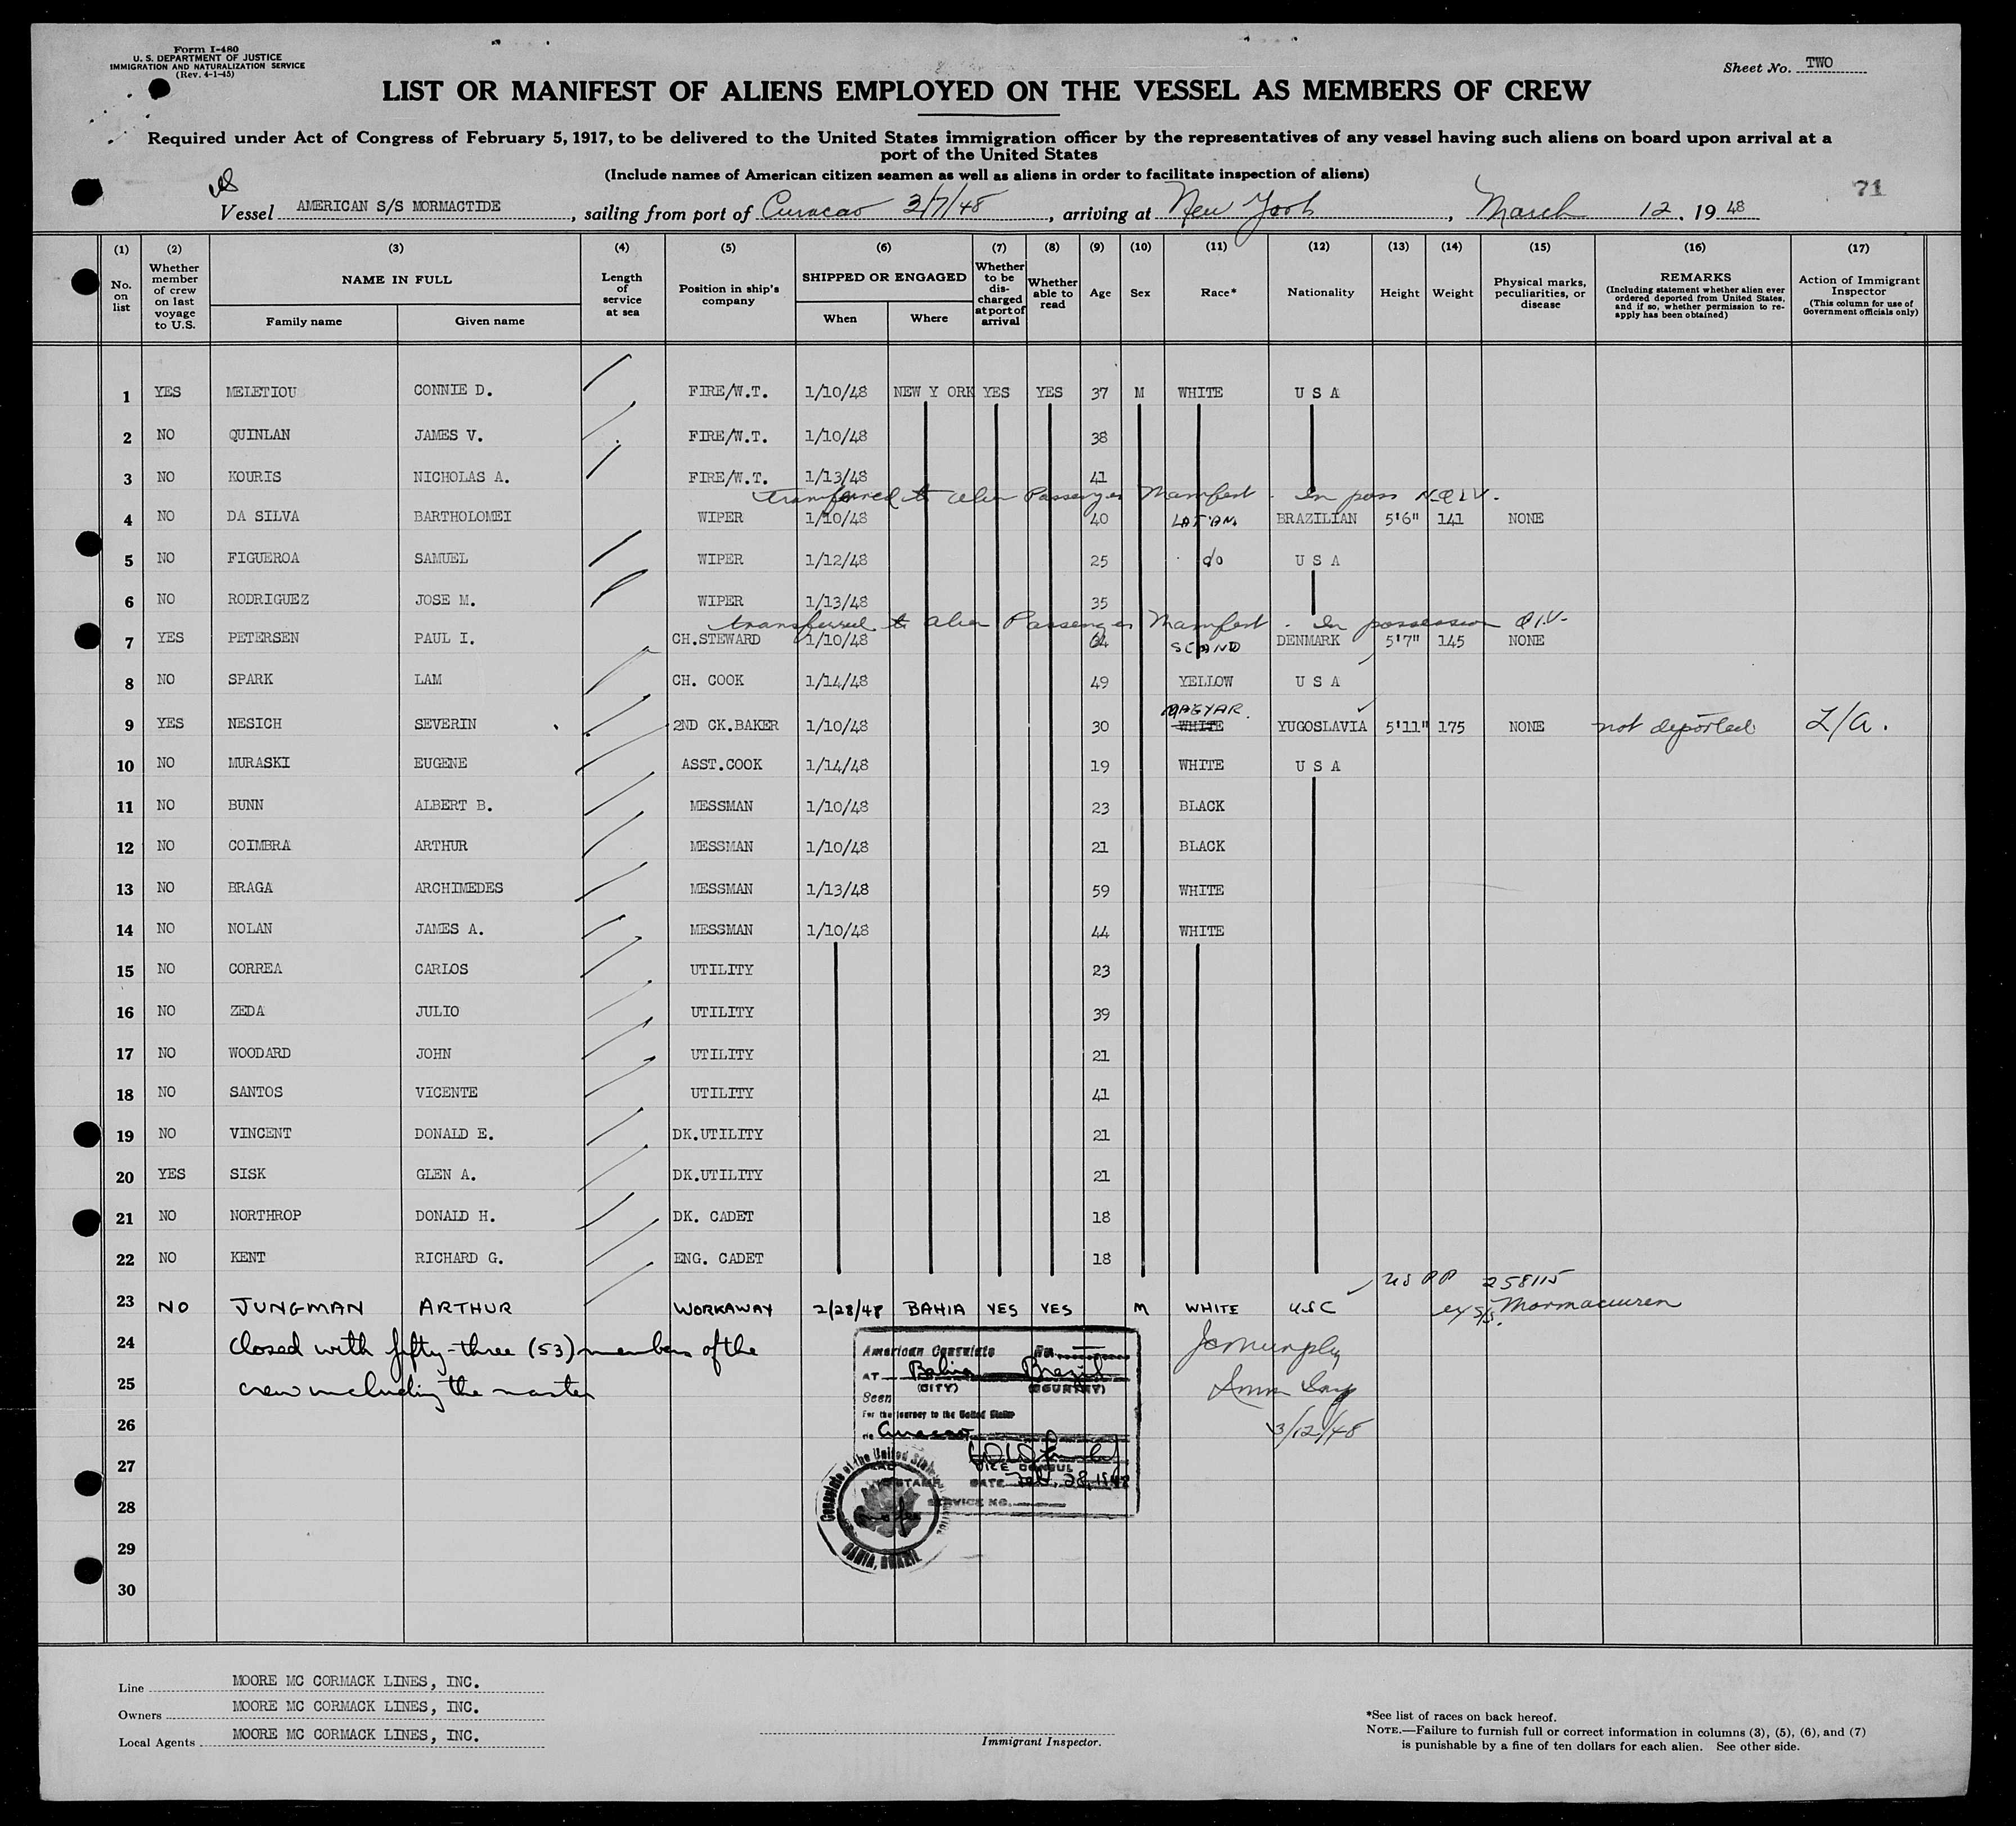 Form I-480
U. S. DEPARTMENT OF JUSTICE
IMMIGRATION AND NATURALIZATION SERVICE
(Rev. 4-1-45)
Sheet No. TWO
LIST OR MANIFEST OF ALIENS EMPLOYED ON THE VESSEL AS MEMBERS OF CREW
Required under Act of Congress of February 5, 1917, to be delivered to the United States immigration officer by the representatives of any vessel having such aliens on board upon arrival at a
port of the United States
(Include names of American citizen seamen as well as aliens in order to facilitate inspection of aliens)
71
Vessel AMERICAN S/S MORMACTIDE, sailing from port of Curacao 3/7/48, arriving at New York, March 12, 1948
(1) (2) (3) (4) (5) (6) (7) (8) (9) (10) (11) (12) (13) (14) (15) (16) (17)
No. on list
Whether member of crew on last voyage to U.S.
NAME IN FULL
Family name
Given name
Length of service at sea
Position in ship's company
SHIPPED OR ENGAGED
When
Where
Whether to be discharged at port of arrival
Whether able to read
Age
Sex
Race*
Nationality
Height
Weight
Physical marks, peculiarities, or disease
REMARKS
(Including statement whether alien ever ordered deported from United States, and if so, whether permission to reapply has been obtained)
Action of Immigrant Inspector
(This column for use of Government officials only)
1 YES MELETIOU CONNIE D. FIRE/W.T. 1/10/48 NEW Y ORK YES YES 37 M WHITE U S A
2 NO QUINLAN JAMES V. FIRE/W.T. 1/10/48 38
3 NO KOURIS NICHOLAS A. FIRE/W.T. 1/13/48 41
transferred to alien Passenger Manifest. In poss
4 NO DA SILVA BARTHOLOMEI WIPER 1/10/48 40 LAT AM. BRAZILIAN 5'6" 141 NONE
5 NO FIGUEROA SAMUEL WIPER 1/12/48 25 do U S A
6 NO RODRIGUEZ JOSE M. WIPER 1/13/48 35
transferred to alien Passenger Manifest. In possession
7 YES PETERSEN PAUL I. CH.STEWARD 1/10/48 64 SCAND DENMARK 5'7" 145 NONE
8 NO SPARK LAM CH. COOK 1/14/48 49 YELLOW U S A
MAGYAR.
9 YES NESICH SEVERIN 2ND CK.BAKER 1/10/48 30 WHITE YUGOSLAVIA 5'11" 175 NONE not deported L/a.
10 NO MURASKI EUGENE ASST.COOK 1/14/48 19 WHITE U S A
11 NO BUNN ALBERT B. MESSMAN 1/10/48 23 BLACK
12 NO COIMBRA ARTHUR MESSMAN 1/10/48 21 BLACK
13 NO BRAGA ARCHIMEDES MESSMAN 1/13/48 59 WHITE
14 NO NOLAN JAMES A. MESSMAN 1/10/48 44 WHITE
15 NO CORREA CARLOS UTILITY 23
16 NO ZEDA JULIO UTILITY 39
17 NO WOODARD JOHN UTILITY 21
18 NO SANTOS VICENTE UTILITY 41
19 NO VINCENT DONALD E. DK.UTILITY 21
20 YES SISK GLEN A. DK.UTILITY 21
21 NO NORTHROP DONALD H. DK. CADET 18
22 NO KENT RICHARD G. ENG. CADET 18
US PP 258115
23 NO JUNGMAN ARTHUR WORKAWAY 2/28/48 BAHIA YES YES M WHITE USC
24 Closed with fifty-three (53) members of the
25 crew including the master
26
27
28
29
30
American Consulate
AT Bahia Brazil
(CITY) (COUNTRY)
Seen
For the journey to the United States
via Curacao
VICE CONSUL
DATE Feb. 28, 1948
SERVICE NO.
BAHIA, BRAZIL
3/12/48
Line MOORE MC CORMACK LINES, INC.
Owners MOORE MC CORMACK LINES, INC.
Local Agents MOORE MC CORMACK LINES, INC.
Immigrant Inspector.
*See list of races on back hereof.
NOTE.—Failure to furnish full or correct information in columns (3), (5), (6), and (7)
is punishable by a fine of ten dollars for each alien. See other side.